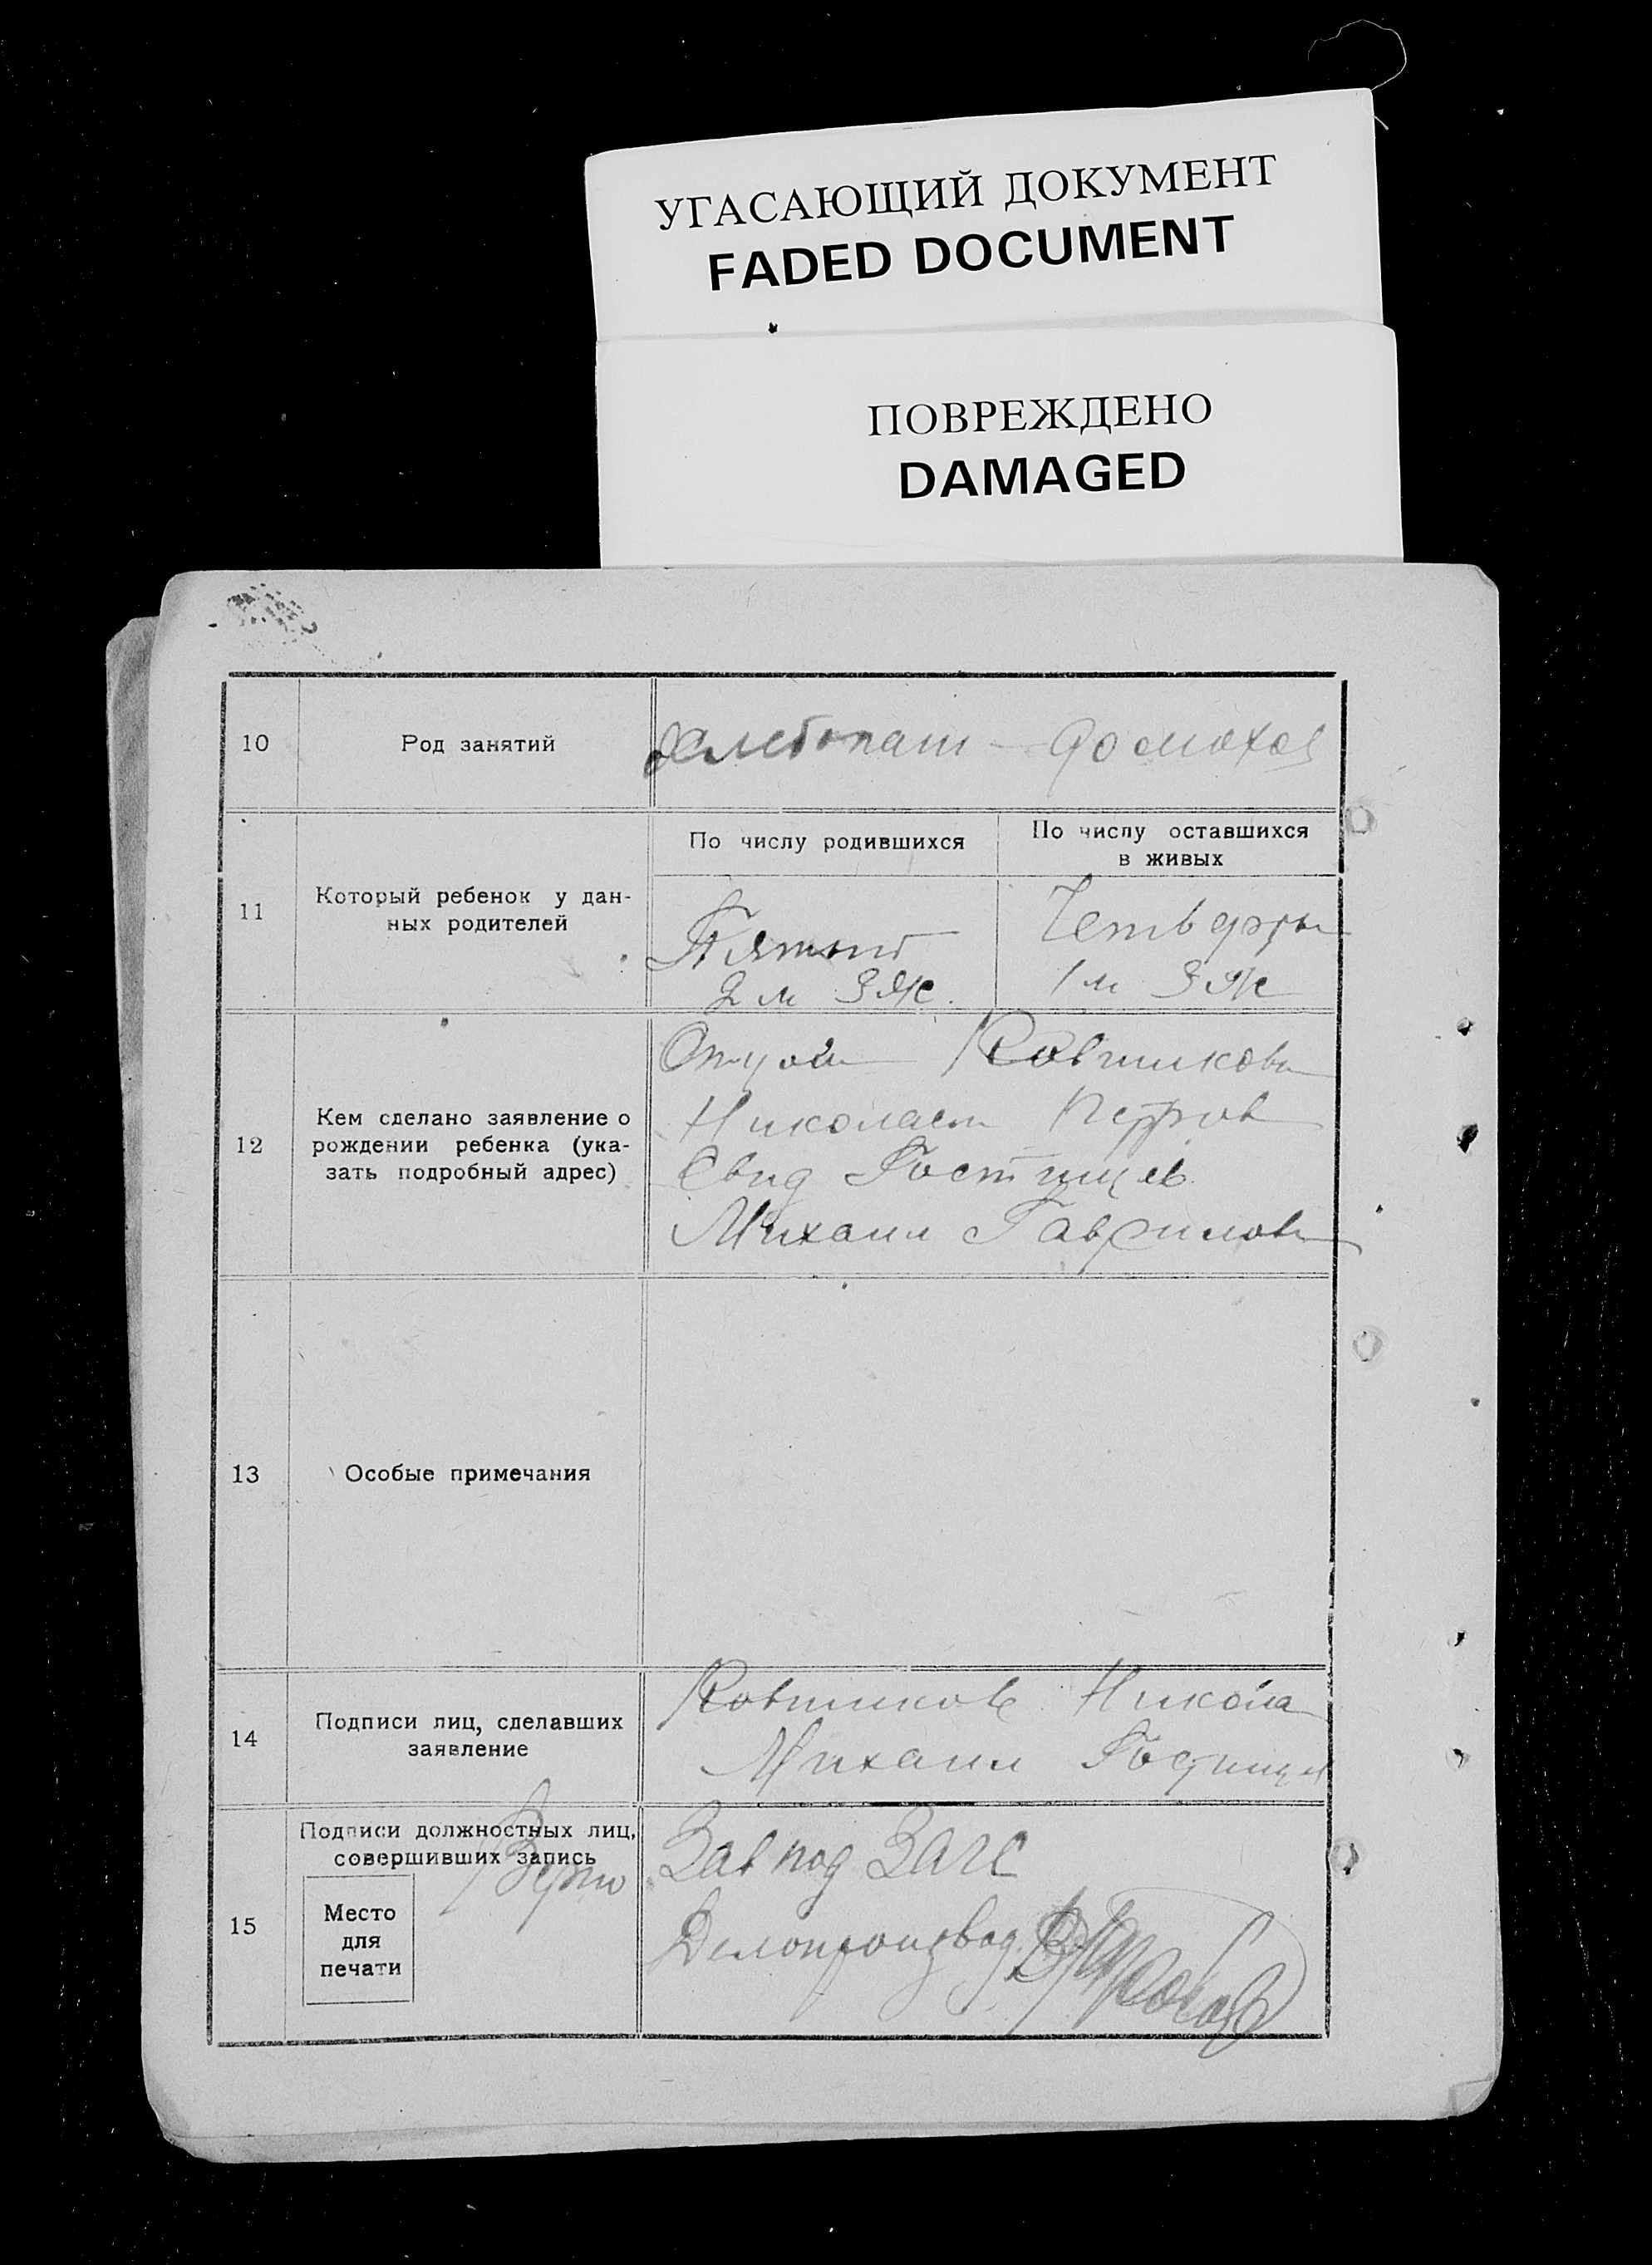 УГАСАЮЩИЙ ДОКУМЕНТ
FADED DOCUMENT
ПОВРЕЖДЕНО
DAMAGED
10 Род занятий Хлебопаш – домохоз
11 Который ребенок у дан-
ных родителей
По числу родившихся
Пятый
2 м 3 ж.
По числу оставшихся
в живых
Четверты
1 м 3 ж
12 Кем сделано заявление о
рождении ребенка (ука-
зать подробный адрес)
Отцом Ковшиковы
Николаем Петров
Свид Гостищев
Михаил Гаврилов
13 Особые примечания
14 Подписи лиц, сделавших
заявление
Ковшиков Никола
Михаил Гостищев
15 Подписи должностных лиц,
совершивших запись
Верно
Место
для
печати
Зав под ЗАГС
Делопроизвод.